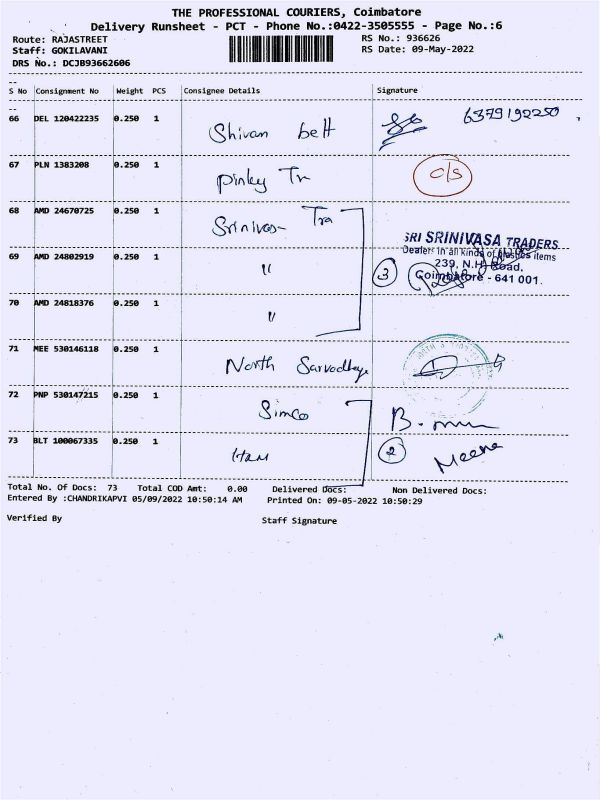 THE PROFESSIONAL COURIERS, Coimbatore
Delivery Runsheet - PCT - Phone No.:0422-3505555 - Page No.:6
Route: RAJASTREET RS No.: 936626
Staff: GOKILAVANI RS Date: 09-May-2022
DRS No.: DCJB93662606
S No Consignment No Weight PCS Consignee Details Signature
66 DEL 120422235 0.250 1 Shivam belt 6379192250
67 PLN 1383208 0.250 1 Pinky Tr o/s
68 AMD 24670725 0.250 1 Srinivas Tra
SRI SRINIVASA TRADERS
Dealers in all kinds of plastics items
69 AMD 24802919 0.250 1 〃 3 239, N.H. Road,
Coimbatore - 641 001.
70 AMD 24818376 0.250 1 〃
71 MEE 530146118 0.250 1 North Sarvodhya
72 PNP 530147215 0.250 1 Simco
73 BLT 100067335 0.250 1 2 Meena
Total No. Of Docs: 73 Total COD Amt: 0.00 Delivered Docs: Non Delivered Docs:
Entered By :CHANDRIKAPVI 05/09/2022 10:50:14 AM Printed On: 09-05-2022 10:50:29
Verified By Staff Signature